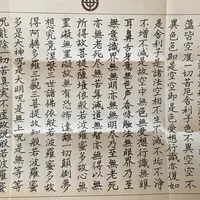 蘊皆空度一切苦厄舍利子色不異空空不
異色色即是空空即是色受想行識亦復如
是舍利子是諸法空相不生不滅不垢不淨
不增不減是故空中無色無受想行識無眼
耳鼻舌身意無色聲香味觸法無眼界乃至
無意識界無無明亦無無明盡乃至無老死
亦無老死盡無苦集滅道無智亦無得以無
所得故菩提薩埵依般若波羅蜜多故心無
罣礙無罣礙故無有恐怖遠離一切顛倒夢
想究竟涅槃三世諸佛依般若波羅蜜多故
得阿耨多羅三藐三菩提故知般若波羅蜜
多是大神咒是大明咒是無上咒是無等等
咒能除一切苦真實不虛故說般若波羅蜜